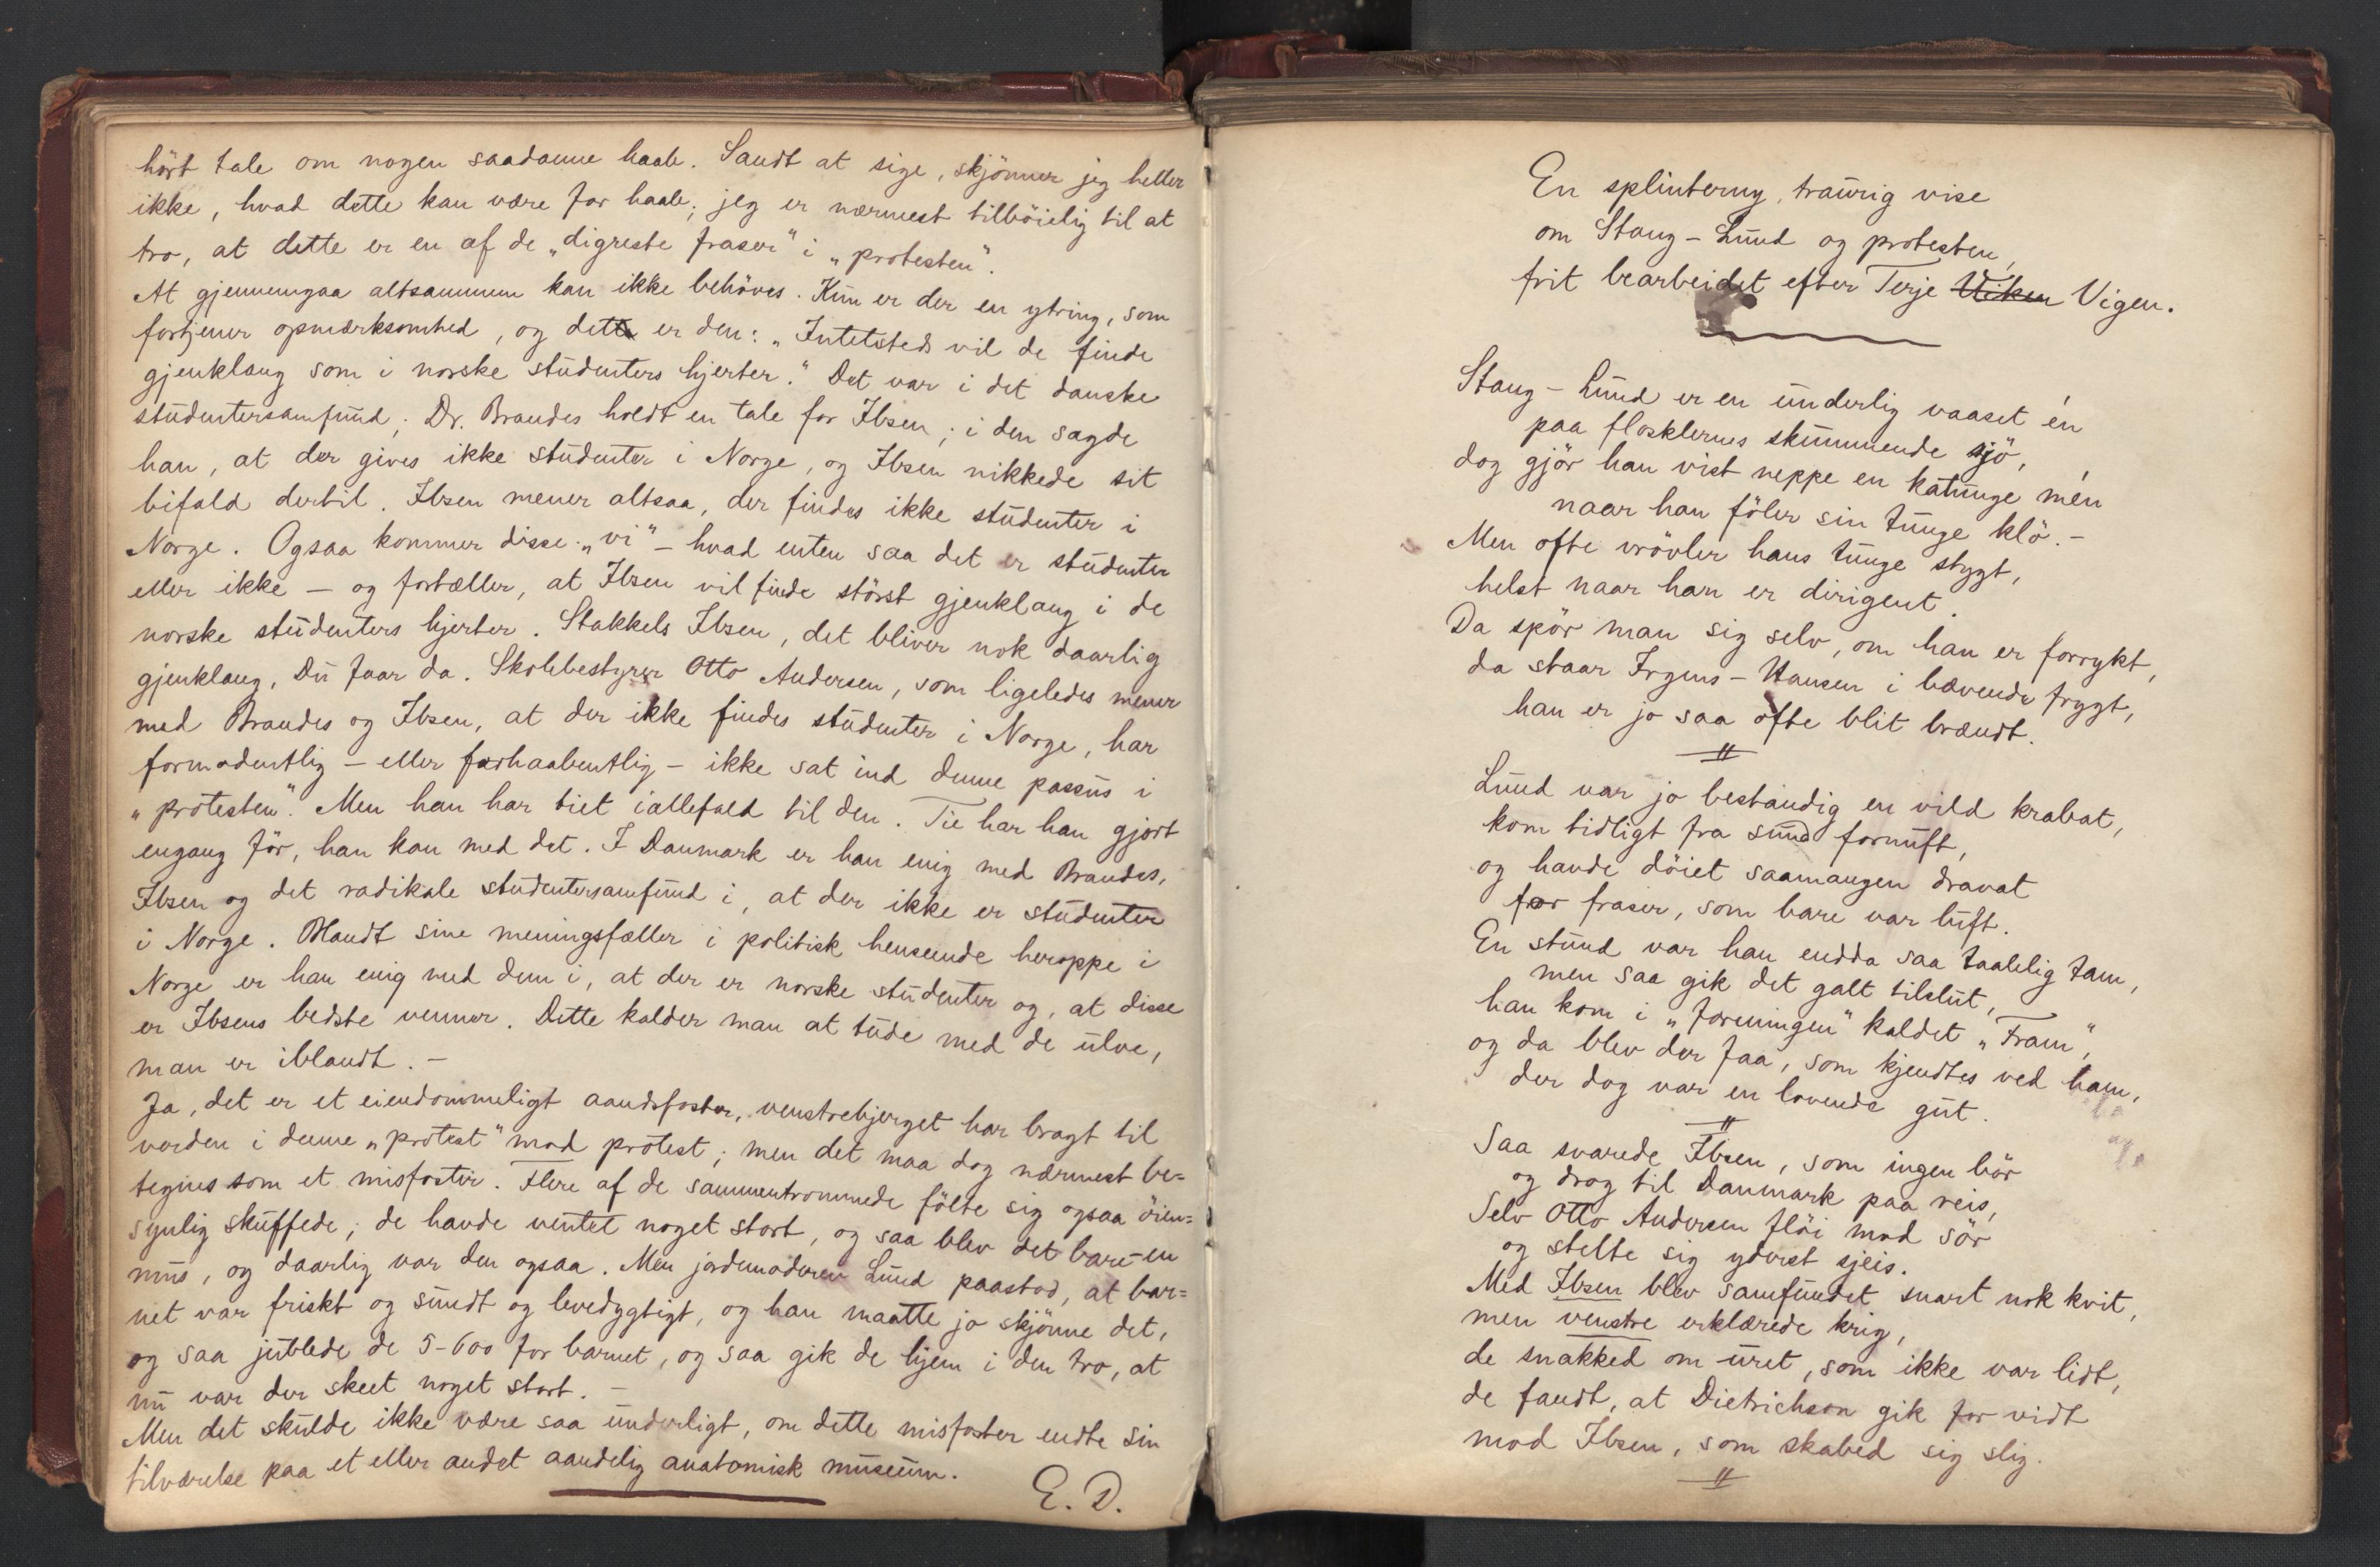 hört tale om nogen saadanne haab. Sandt at sige, skjönner jeg heller
ikke, hvad dette kan være for haab; jeg er nærmest tilböielig til at
tro, at dette er en af de „digreste fraser" i „protesten".
At gjennemgaa altsammen kan ikke behöves. Kun er der en ytring, som
fortjener opmærksomhed, og dette er den: „Intetsteds vil de finde
gjenklang som i norske studenters hjerter." Det var i det danske
studentersamfund; Dr. Brandes holdt en tale for Ibsen; i den sagde
han, at der gives ikke studenter i Norge, og Ibsen nikkede sit
bifald dertil. Ibsen mener altsaa, der findes ikke studenter i
Norge. Ogsaa kommer disse „vi" – hvad enten saa det er studenter
eller ikke – og fortæller, at Ibsen vil finde störst gjenklang i de
norske studenters hjerter. Stakkels Ibsen, det bliver nok daarlig
gjenklang, Du faar da. Skolebestyrer Otto Andersen, som ligeledes mener
med Brandes og Ibsen, at der ikke findes studenter i Norge, har
formodentlig – eller forhaabentlig – ikke sat ind denne passus i
„protesten". Men han har tiet iallefald til den. Tie har han gjort
engang för, han kan med det. I Danmark er han enig med Brandes,
Ibsen og det radikale studentersamfund i, at der ikke er studenter
i Norge. Blandt sine meningsfæller i politisk henseende heroppe i
Norge er han enig med dem i, at der er norske studenter og, at disse
er Ibsens bedste venner. Dette kalder man at tude med de ulve,
man er iblandt. –
Ja, det er et eiendommeligt aandsfoster, venstrebjerget har bragt til
verden i denne „protest" mod protest; men det maa dog nærmest be=
tegnes som et misfoster. Flere af de sammentrommede fölte sig ogsaa öien=
synlig skuffede; de havde ventet noget stort, og saa blev det bare en
mus, og daarlig var den ogsaa. Men jordemoderen Lund paastod, at bar=
net var friskt og sundt og levedygtigt, og han maatte jo skjönne det,
og saa jublede de 5–600 for barnet, og saa gik de hjem i den tro, at
nu var der skeet noget stort. –
Men det skulde ikke være saa underligt, om dette misfoster endte sin
tilværelse paa et eller andet aandelig anatomisk museum.
E. D.
En splinterny, traurig vise
om Stang – Lund og protesten,
frit bearbeidet efter Terje Viken Vigen.
Stang – Lund er en underlig vaaset én
paa flosklernes skummende sjö,
dog gjör han vist neppe en katunge mén
naar han föler sin tunge klö. –
Men ofte vrövler hans tunge stygt,
helst naar han er dirigent.
Da spör man sig selv, om han er forrykt,
da staar Irgens – Hansen i bævende frygt,
han er jo saa ofte blit brændt.
Lund var jo bestandig en vild krabat,
kom tidligt fra sund fornuft,
og havde döiet saamangen dravat
for fraser, som bare var luft.
En stund var han endda saa taalelig tam,
men saa gik det galt tilslut,
han kom i „foreningen" kaldet „Fram",
og da blev der faa, som kjendtes ved ham,
der dog var en lovende gut.
Saa svarede Ibsen, som ingen bör
og drog til Danmark paa reis,
Selv Otto Andersen flöi mod sör
og stelte sig yderst sjeis.
Med Ibsen blev samfundet snart nok kvit,
men venstre erklærede krig,
de snakked om uret, som ikke var lidt,
de fandt, at Dietrichson gik for vidt
mod Ibsen, som skabed sig slig.